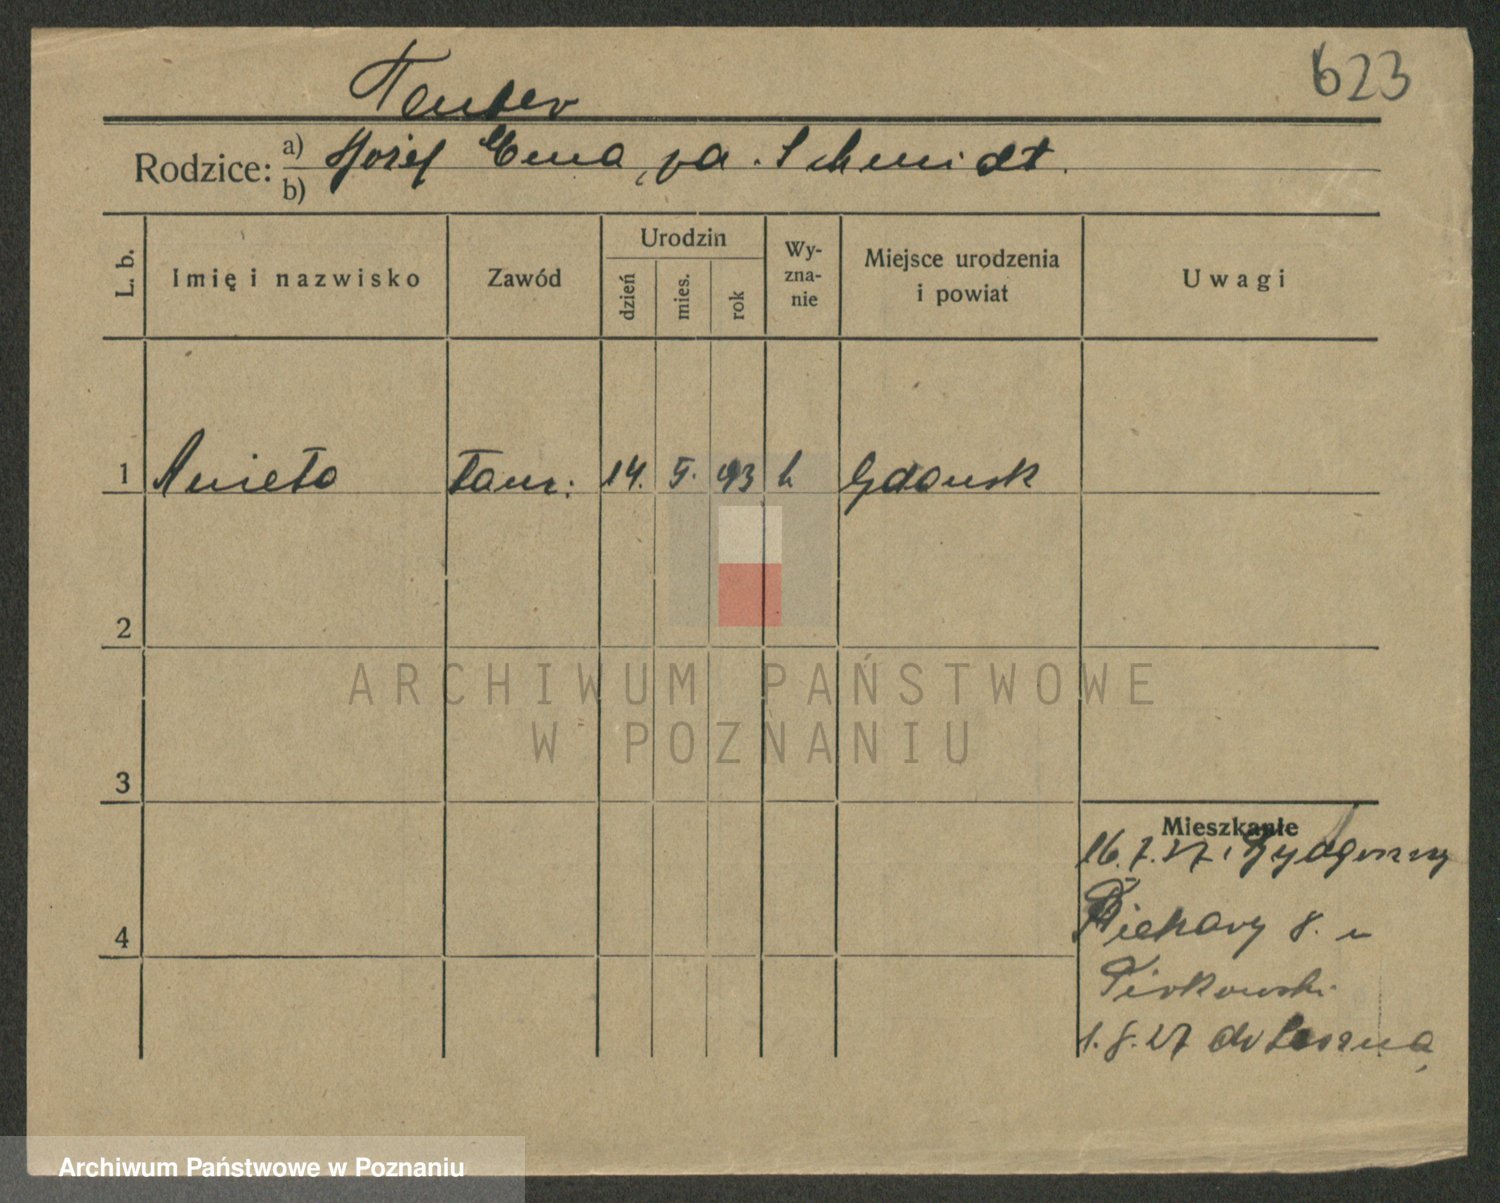 623
Teuber
Rodzice: a) Józef Ema, va. Schmidt.
b)
L. b.
Imię i nazwisko
Zawód
Urodzin
dzień
mies.
rok
Wy-
zna-
nie
Miejsce urodzenia
i powiat
Uwagi
1 Anieta 14. 5. 93 Gdańsk
2
3
4
Mieszkanie
16.7.27. Bydgoszczy
Piekary 8. u
Pirkowski
1.8.27 do Leszna
ARCHIWUM PAŃSTWOWE
W POZNANIU
Archiwum Państwowe w Poznaniu